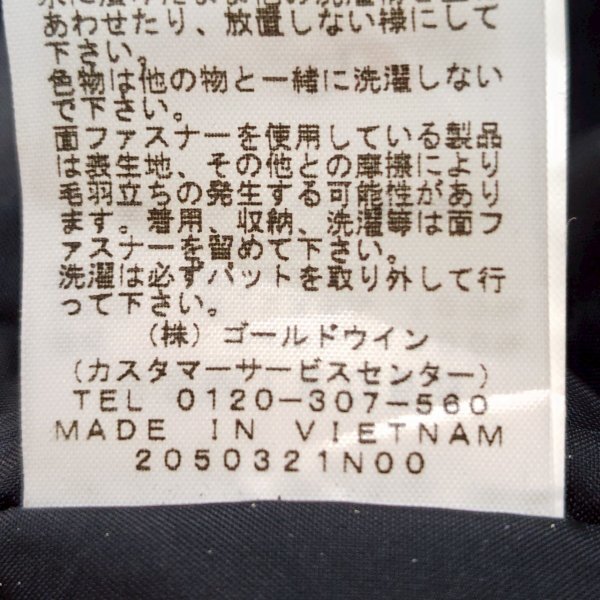 あわせたり、放置しない様にして
下さい。
色物は他の物と一緒に洗濯しない
で下さい。
面ファスナーを使用している製品
は表生地、その他との摩擦により
毛羽立ちの発生する可能性があり
ます。着用、収納、洗濯等は面フ
ァスナーを留めて下さい。
洗濯は必ずパットを取り外して行
って下さい。
(株) ゴールドウイン
(カスタマーサービスセンター)
TEL 0120-307-560
MADE IN VIETNAM
2050321N00